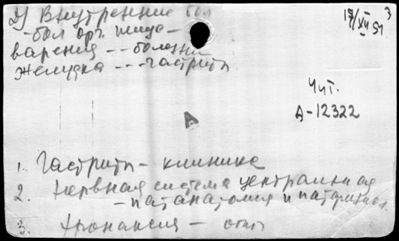 У Внутренние бол
- бол орг. пище-
варения --- болезни
желудка --- гастриты
18/XII 51
3
Чит.
А-12322
А
1. Гастриты - клиника
2. Нервная система центральная
- патанатомия и патфизиол.
3. Хронаксия -